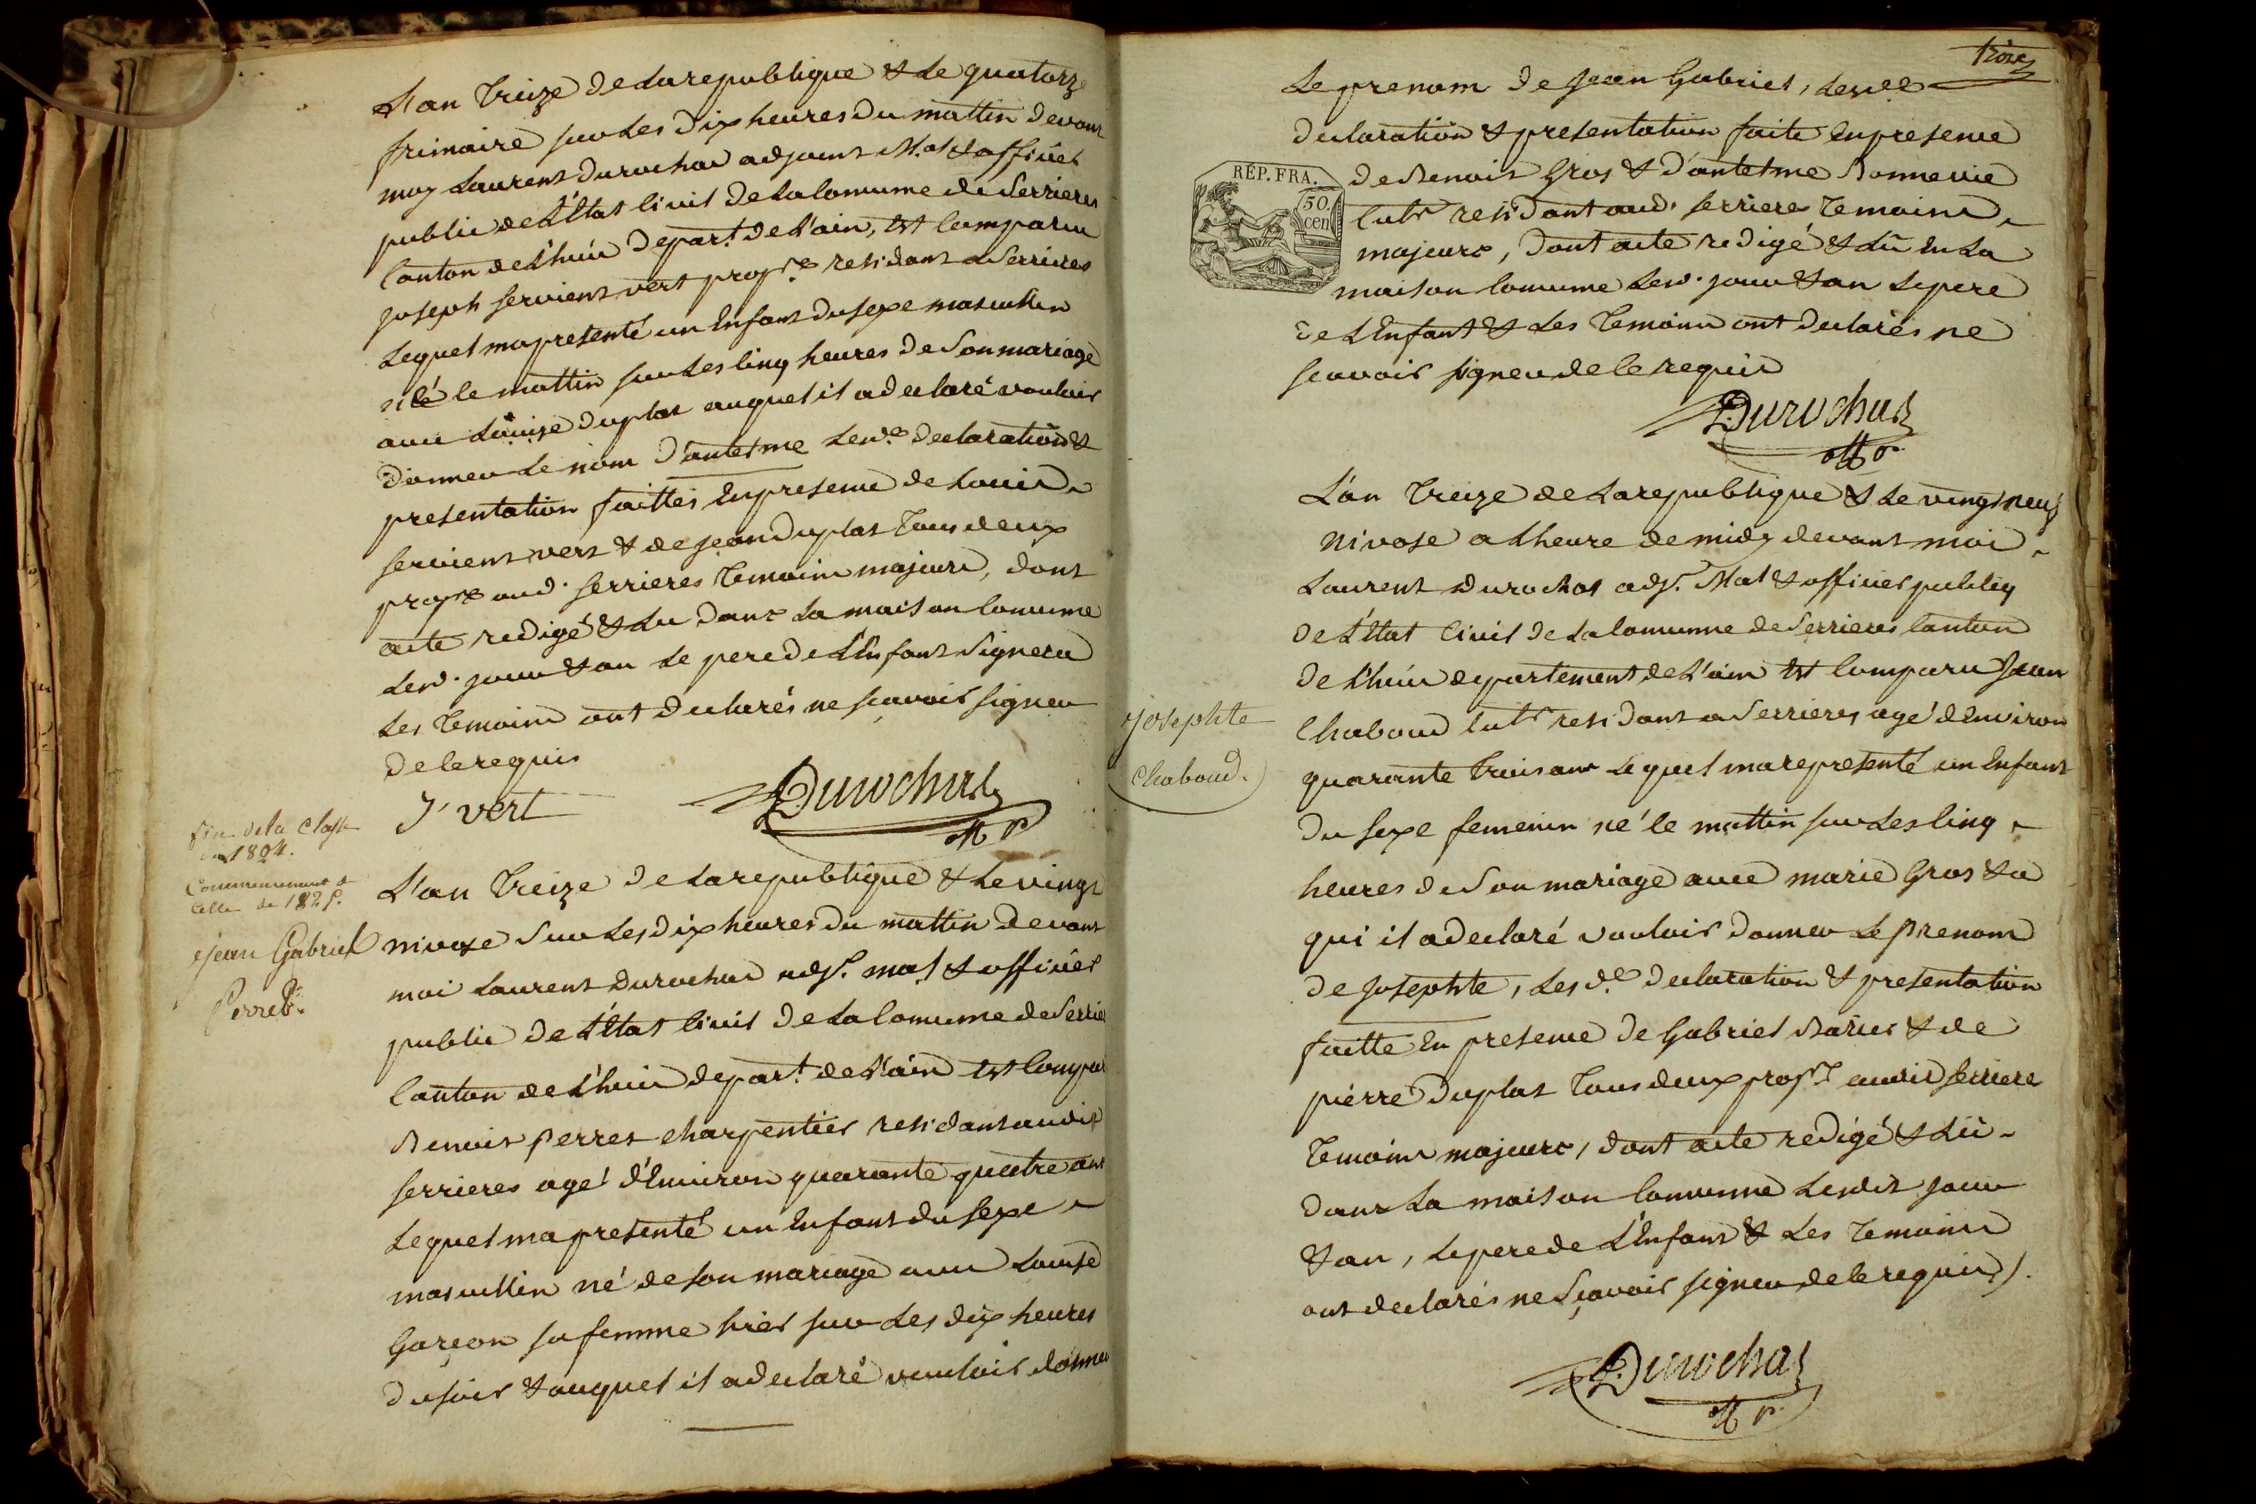 L'an treize de la republique & le quatorze
frimaire sur les dix heures du mattin devant
moy Laurent Durochat adjoint M.al & officier
public de L'Etat Civil de la Comune de Serrieres
Canton de Lhuis Depart.t de L'ain, Est Comparu
joseph servient vert prop.re residant a Serrieres
Lequel ma presenté un Enfant du sexe masculin
né le mattin sur les Cinq heures de Son mariage
avec Louise Duplat auquel il a declaré vouloir
donner Le nom D'antelme Lesd.es Declaration &
presentation faittes En presence de Louis
servient vert & de jean Duplat tous deux
prop.res aud. serrieres temoins majeurs, dont
acte redigé & Lu dans La maison Comune
Lesd. jour & an Le pere de L'Enfant Signera
Les temoins ont declarés ne sçavoir signer
de Ce requis
J' vert
Durochat
off p.
fin de la classe
de 1804.
Commencement de
Celle de 1825.
Jean Gabriel
Perret.
L'an treize de La republique & Le vingt
nivose Sur Les dix heures du mattin devant
moi Laurent Durochat adj.t mal & officier
public de L'Etat Civil de La Comune de Serrieres
Canton de L'huis depart.t de L'ain Est Compar
Benoit Perret charpentier residant audit
serrieres agé d'Environ quarante quatre ans
Lequel ma presenté un Enfant du sexe
masculin né de son mariage avec Louise
Garçon sa femme hier sur Les dix heures
du soir & auquel il a declaré vouloir donner
treize
Le prenom de Jean Gabriel, Lesd.es
declaration & presentation faite En presence
de Benoit Gros & D'antelme Bonnevie
Cult.rs residant aud. serrieres temoins
majeurs, Dont acte redigé & Lû En La
maison Comune Lesd. jour & an Le pere
de L'Enfant & Les temoins ont declarés ne
sçavoir signer de Ce requis
RÉP. FRA.
50.
cen
Durochat
off p.
Josephte
Chaboud.
L'an treize de La republique & Le vingt neuf
Nivose a Lheure de midy devant moi
Laurent Durochat adj.t Mal & officier public
de L'Etat Civil de La Comunne de Serrieres Canton
de L'huis departement de L'ain Est Comparu Jean
Chaboud Cult.r residant a Serrieres agé d'Environ
quarante trois ans Lequel ma representé un Enfant
du sexe femenin né le mattin sur Les Cinq
heures de Son mariage avec marie Gros & a
qui il a declaré vouloir donner Le Prenom
de Josephte, Lesd.es declaration & presentation
faitte En presence de Gabriel & de
pierre Duplat tous deux prop.res audit serriere
temoins majeurs, dont acte redigé & Lû
dans La maison Comunne Lesdit jour
& an, Le pere de L'Enfant & Les temoins
ont declarés ne Sçavoir signer de Ce requis /.
Durochat
off p.